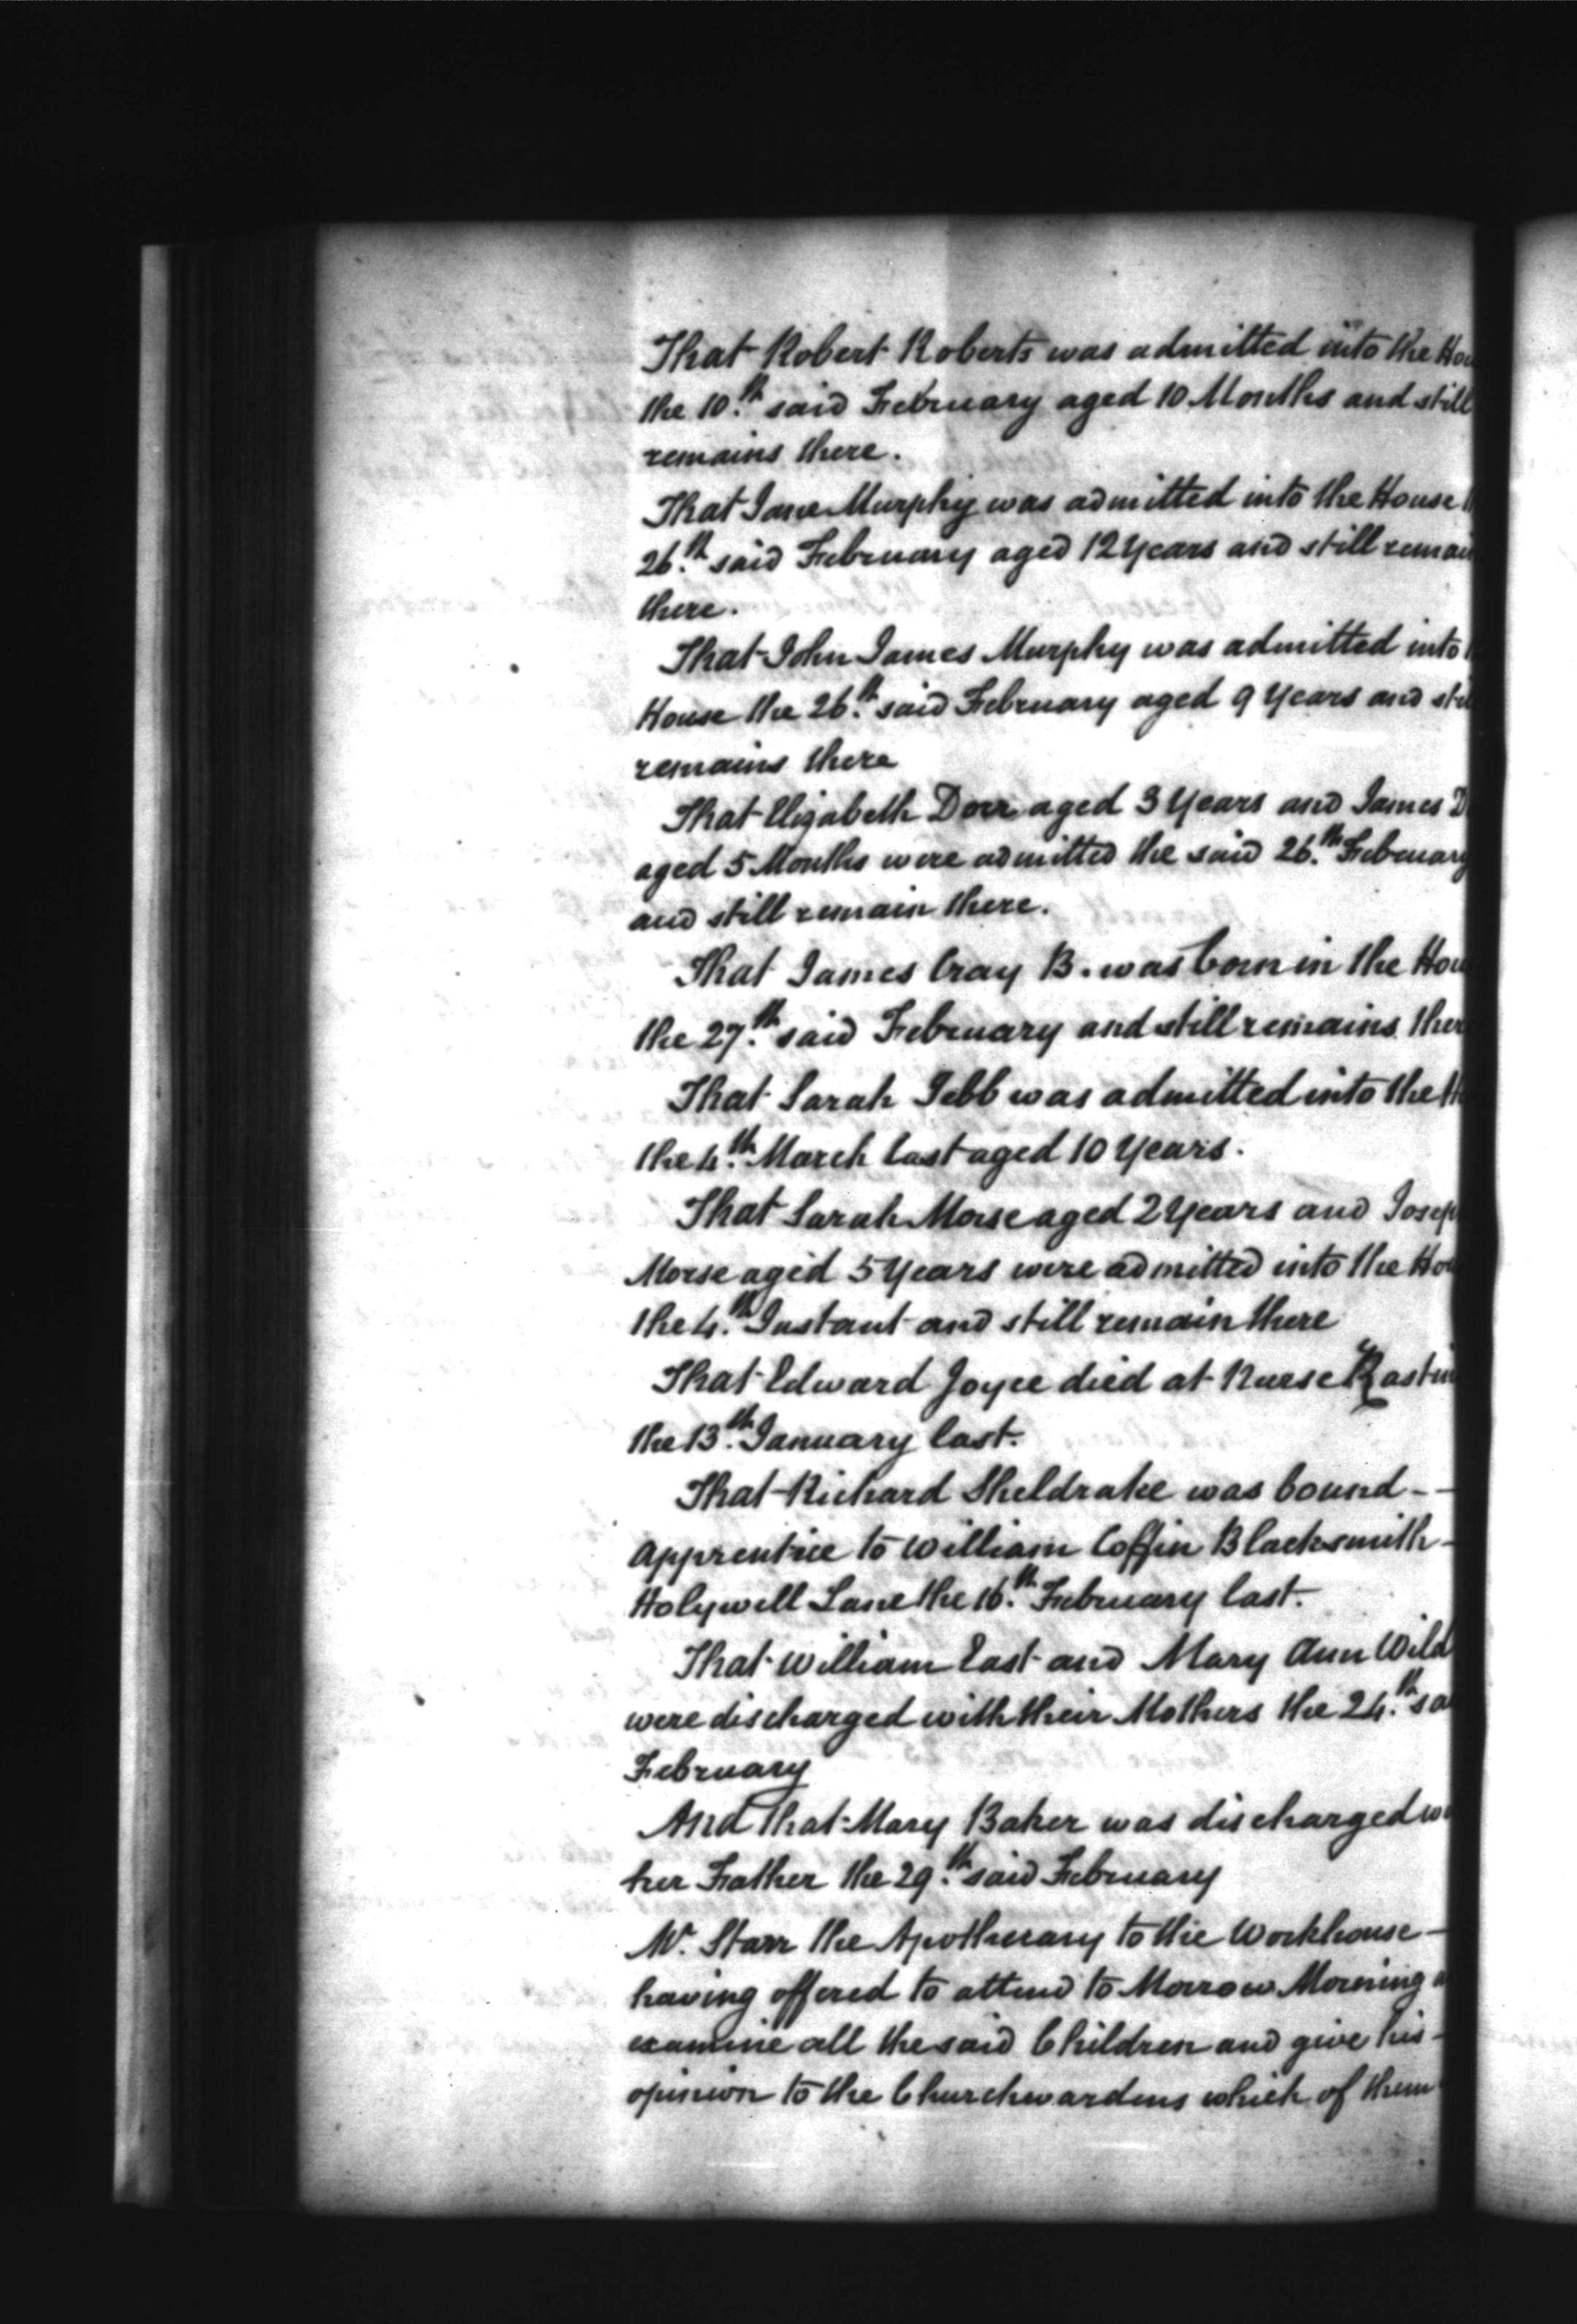 That Robert Roberts was admitted into the Hou
the 10.th said February aged 10 Months and still
remains there.
That Jane Murphy was admitted into the House
26.th said February aged 12 Years and still remai
there.
That John James Murphy was admitted into
House the 26.th said February aged 9 Years and sti
remains there
That Elizabeth Dorr aged 3 Years and James D
aged 5 Months were admitted the said 26.th February
and still remain there.
That James Cray B. was born in the Hou
the 27.th said February and still remains ther
That Sarah Tebb was admitted into the H
the 4.th March last aged 10 Years.
That Sarah Morse aged 2 Years and Josep
Morse aged 5 Years were admitted into the Hou
the 4.th Instant and still remain there
That Edward Joyce died at Nurse Rastin
the 13.th January last.
That Richard Sheldrake was bound - -
Apprentice to William Coffin Blacksmith -
Holywell Lane the 16.th February last.
That William East and Mary Ann Wild
were discharged with their Mothers the 24.th sa
February
And that Mary Baker was discharged wi
her Father the 29.th said February
Mr. Starr the Apothecary to the Workhouse -
having offered to attend to Morrow Morning a
examine all the said Children and give his -
opinion to the Churchwardens which of them